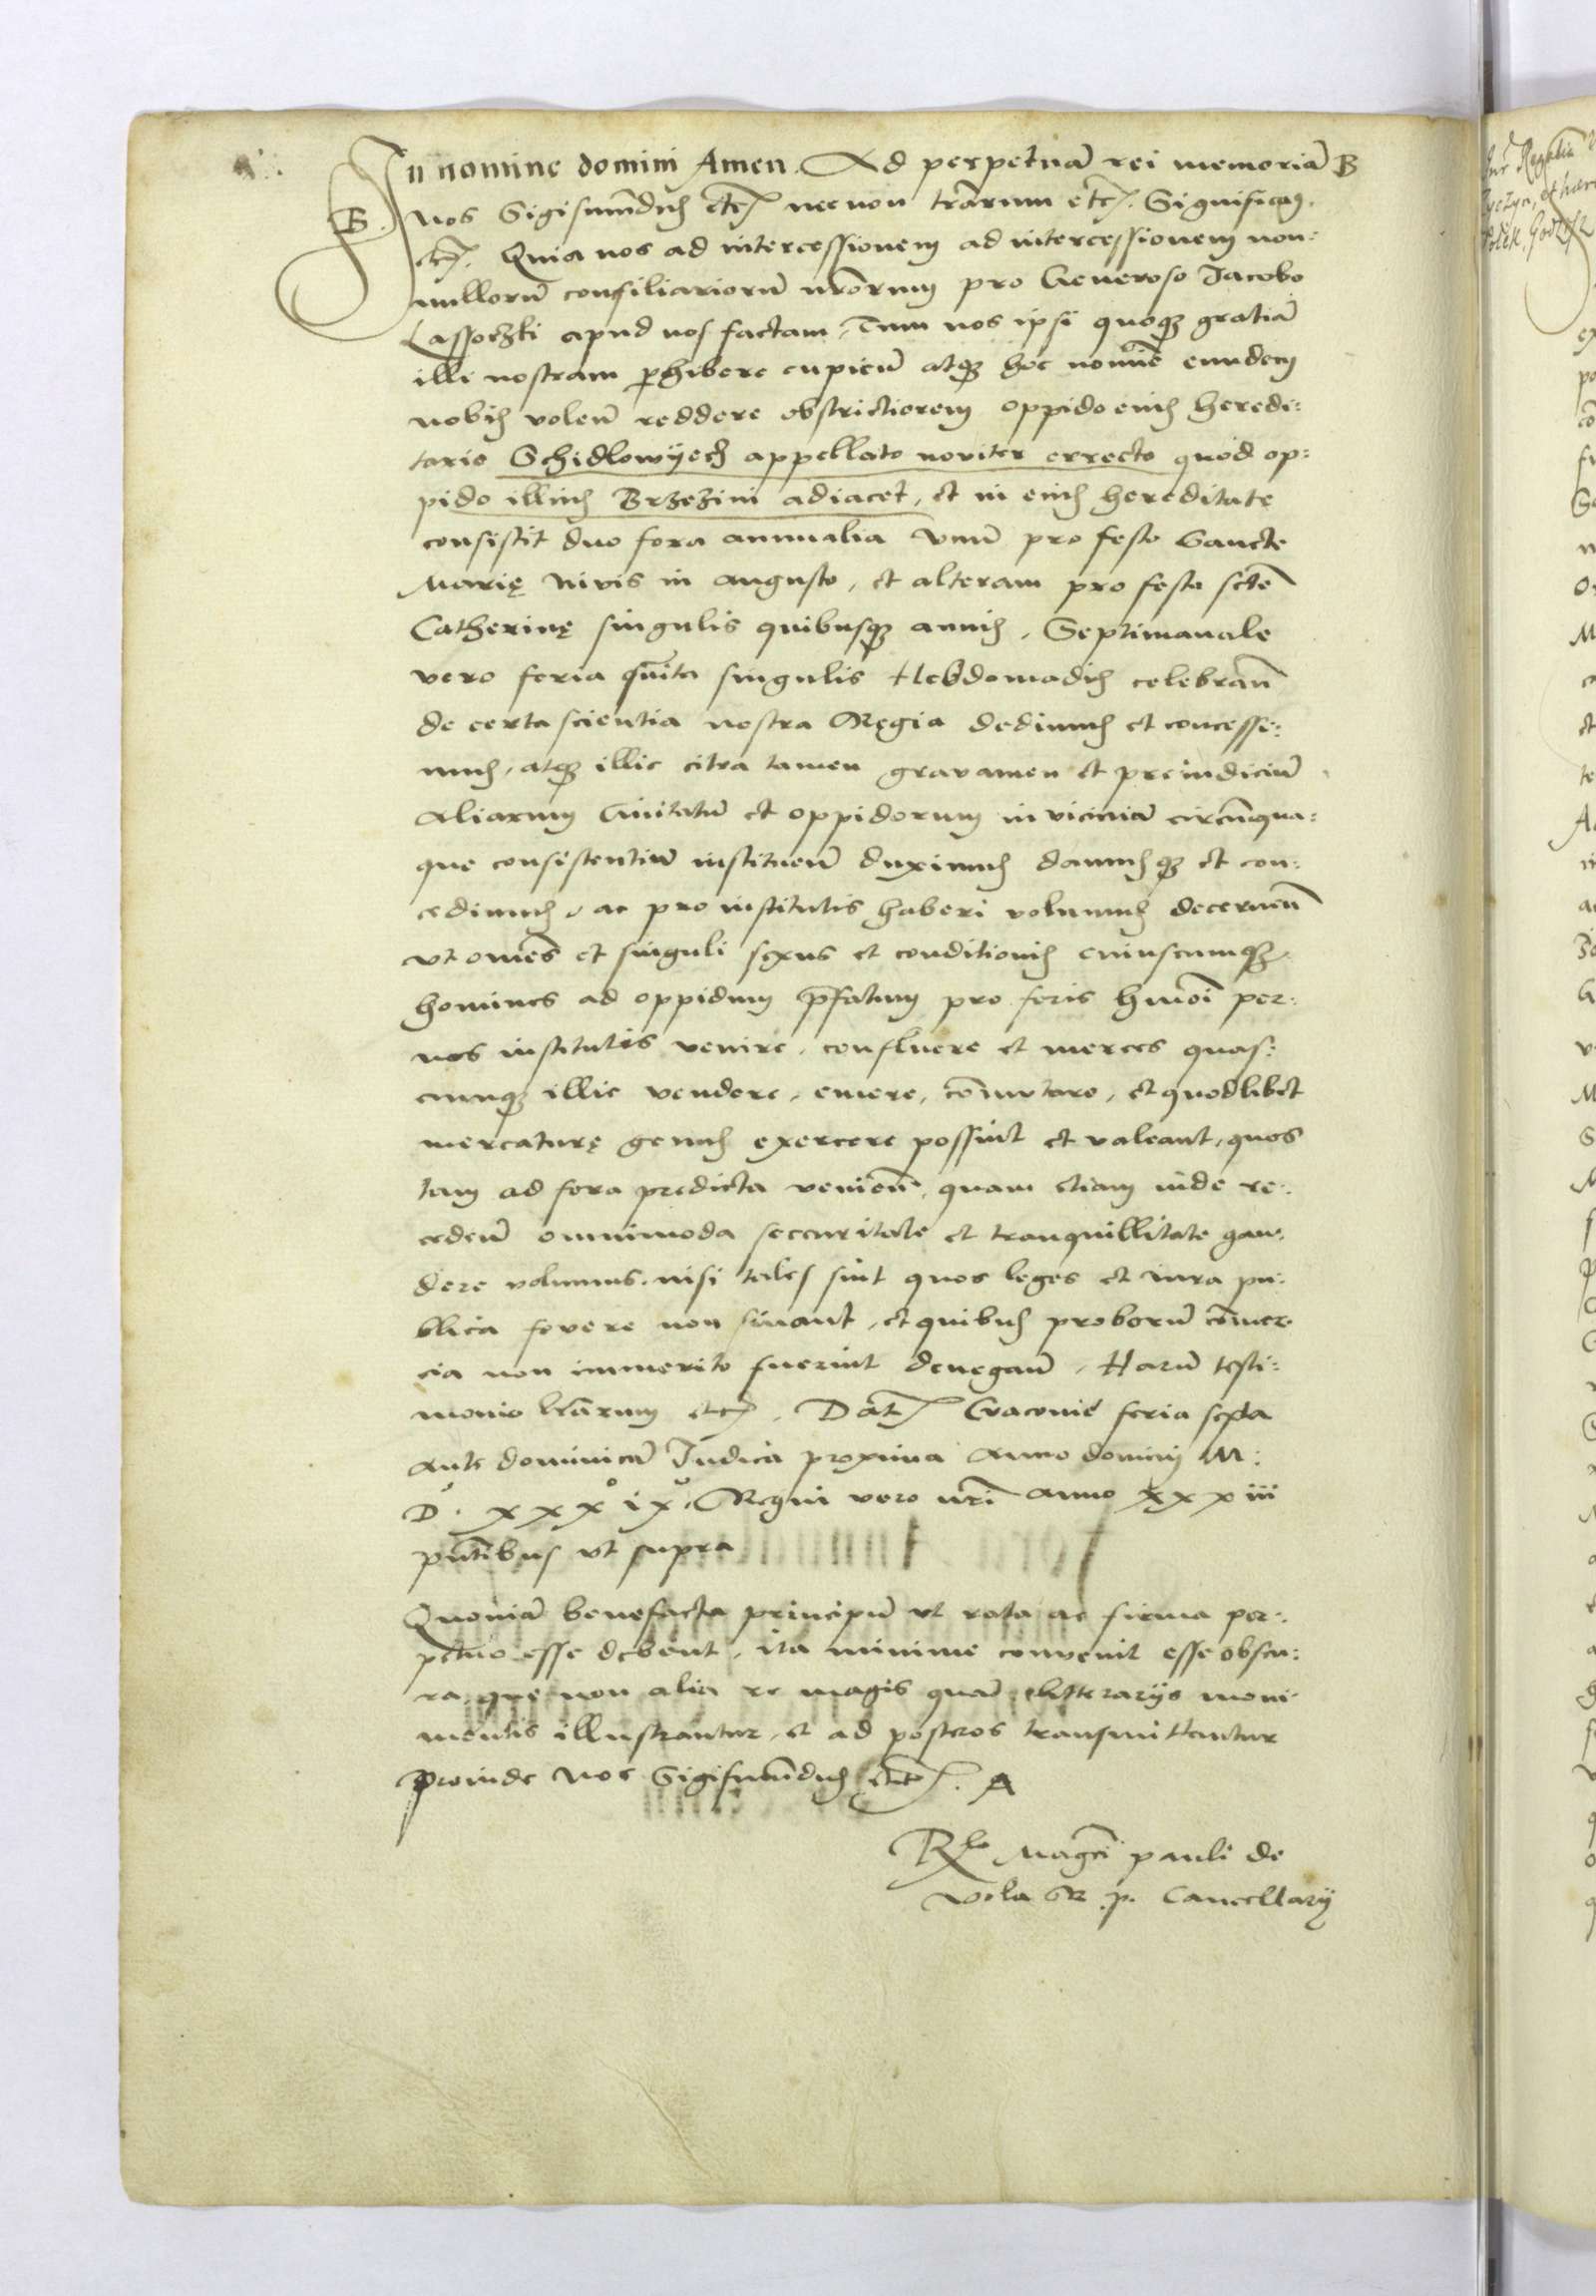 In nomine domini Amen. Ad perpetuā rei memoriā B
B. Nos Sigismūdus etc nec non trārum etc. Significam.
etc. Quia nos ad intercessionem ad intercessionem non:
nullorū consiliariorū nrōrum pro Generoso Jacobo
Lassoczki apud nos factam, Tum nos ipsi quoqз gratiā
illi nostram p̄hibere cupien̄ atqз hoc nomīe eundem
nobis volen̄ reddere obstrictiorem oppido eius heredi:
tario Schidlowyecz appellato noviter errecto quod op:
pido illius Brzezini adiacet, et in eius hereditate
consistit duo fora annualia Vnū pro festo Sancte
Marię Nivis in augusto, et alteram pro festo sctē
Catherinę singulis quibusqз annis, Septimanale
vero feria quīta singulis Hebdomadis celebran̄
de certa scientia nostra Ręgia dedimus et concesse:
mus, atqз illic citra tamen gravamen et preiudiciū
aliarum Civitatū et oppidorum in viciniā circūqua:
que consistentiū instituen̄ duximus damusqз et con:
cedimus, ac pro institutis haberi volumus decernen̄
vt omēs et singuli sexus et conditionis cuiuscumqз
homines ad oppidum p̄fatum pro foris hmōi per:
nos institutis venire, confluere et merces quas:
cunqз illic vendere, emere, cōmutare, et quodlibet
mercaturę genus exercere possint et valeant, quos
tam ad fora predicta venien̄, quam etiam inde re:
ceden̄ omnimoda seccuritate et tranquillitate gau:
dere volumus, nisi tales sint quos leges et iura pu:
blica fovere non sinant, et quibus proborū cōmer
cia non immerito fuerint denegan̄. Harū testi:
monio lrārum etc. Dat Cracovie feria sexta
ante dominicā Judica proxima Anno domini M:
D. xxx ix. Regni vero nrī anno xxxiii
pn̄tibus vt supra
Quoniā benefacta principū vt rata ac firma per:
petuo esse debent, ita minime convenit esse obscu:
ra, quę non alia re magis quā litterarys moni
mentis illustrantur, et ad posteros transmittantur
Proinde Nos Sigismūdus etc. A
Rlo Magci pauli de
Vola R. p. Cancellary